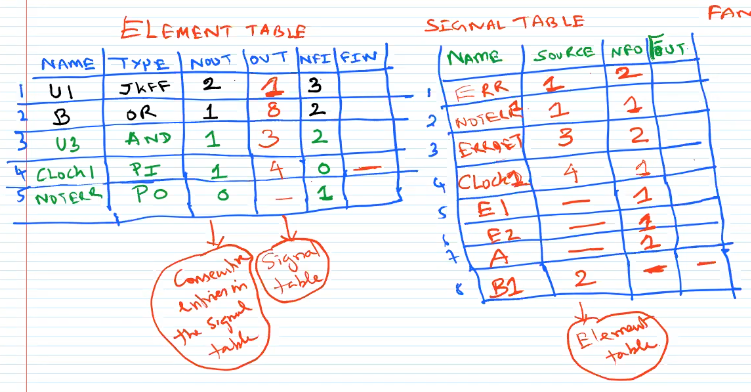 ELEMENT TABLE
NAME TYPE NOUT OUT NFI FIN
1 U1 JKFF 2 1 3
2 B OR 1 8 2
3 U3 AND 1 3 2
4 CLOCK1 PI 1 4 0 —
5 NOTERR PO 0 — 1
Consecutive
entries in
the signal
table
Signal
table
SIGNAL TABLE
NAME SOURCE NFO FOUT
1 ERR 1 2
2 NOTERR 1 1
3 ERRDET 3 2
4 CLOCK1 4 1
5 E1 — 1
6 E2 — 1
7 A — 1
8 B1 2 — —
Element
table
FAN